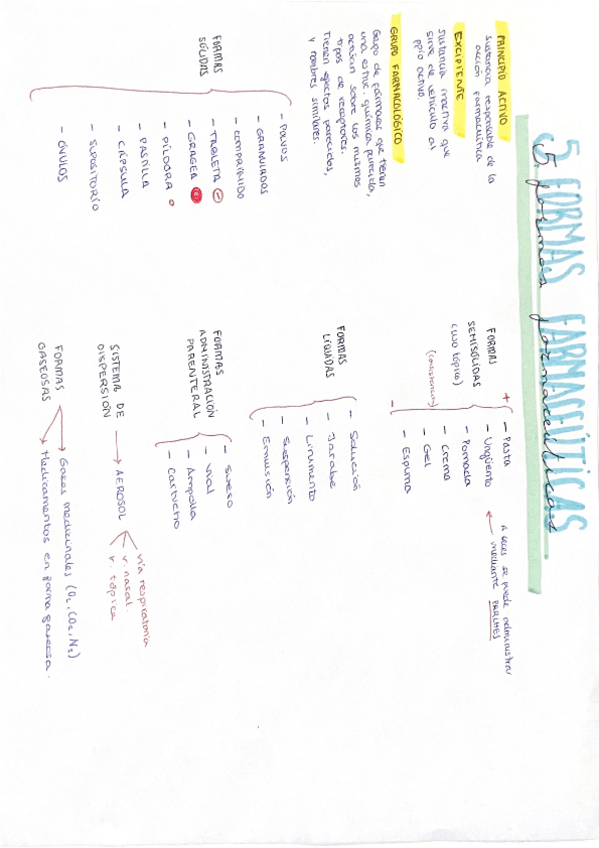 5 FORMAS FARMACEÚTICAS
5. formas farmaceúticas
PRINCIPIO ACTIVO
Sustancia responsable de la
acción farmacéutica
EXCIPIENTE
Sustancia inactiva que
sirve de vehículo al
ppio activo.
GRUPO FARMACOLÓGICO
Grupo de fármacos que tienen
una estruc. química parecida,
actúan sobre los mismos
tipos de receptores.
Tienen efectos parecidos,
y nombres similares.
FORMAS
SÓLIDAS
- POLVOS
- GRANULADOS
- COMPRIMIDO
- TABLETA
- GRAGEA
- PÍLDORA
- PASTILLA
- CÁPSULA
- SUPOSITORIO
- ÓVULOS
FORMAS
SEMISÓLIDAS
(uso tópico)
(consistencia)
+
- Pasta
- Ungüento
- Pomada
- Crema
- Gel
- Espuma
-
A veces se puede administrar
mediante PARCHES
FORMAS
LÍQUIDAS
- Solución
- Jarabe
- Linimento
- Suspensión
- Emulsión
FORMAS
ADMINISTRACIÓN
PARENTERAL
- Suero
- Vial
- Ampolla
- Cartucho
SISTEMA DE
DISPERSIÓN
→ AEROSOL
vía respiratoria
v. nasal.
v. tópica
FORMAS
GASEOSAS
→ Gases medicinales (O₂, CO₂, N₂)
→ Medicamentos en forma gaseosa.